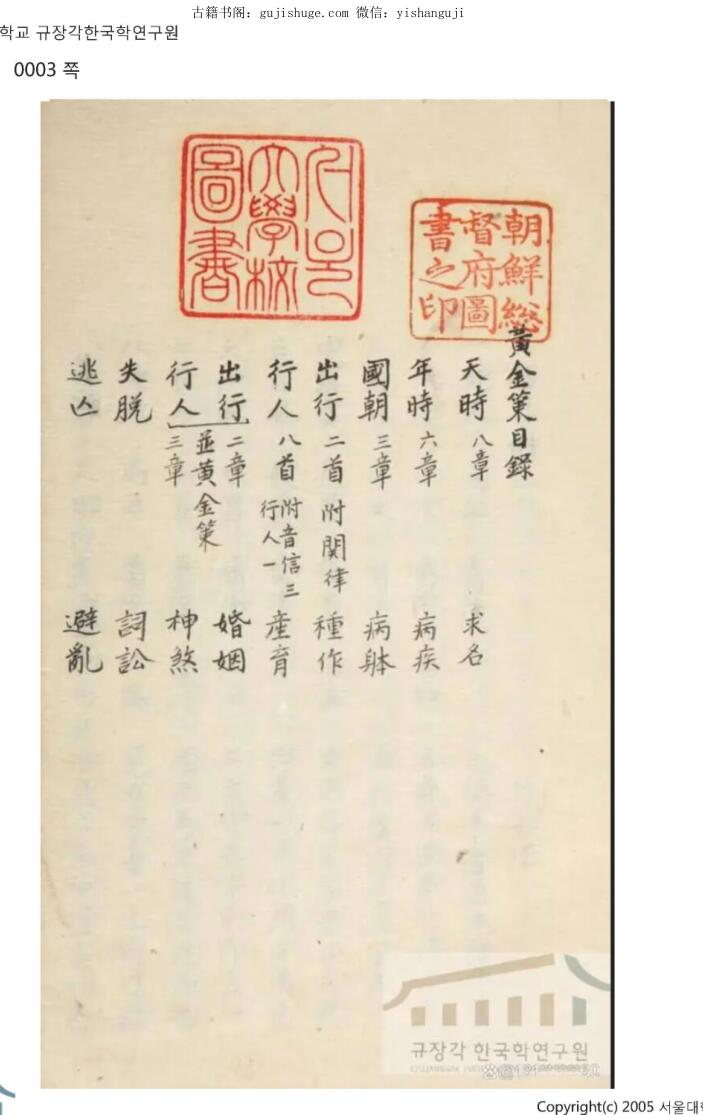 古籍书阁：gujishuge.com 微信：yishanguji
학교 규장각한국학연구원
0003 쪽
朝鮮総
督府圖
書之印
서울
大學校
圖書
黃金策目錄
天時 八章 求名
年時 六章 病疾
國朝 三章 病躰
出行 二首 附関律 種作
行人 八首 附音信三 行人一 産育
出行 二章 婚姻
並黃金策
行人 三章 神煞
失脱 詞訟
逃亾 避亂
규장각 한국학연구원
Copyright(c) 2005 서울대